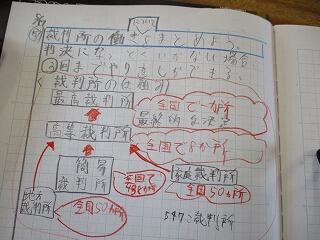 裁判所の働きをまとめよう。
判決になっとくいかない場合、
③回までやりなおしができる。
裁判所の仕組み
最高裁判所
全国で一か所
最終的な決定
高等裁判所
全国で8か所
簡易裁判所
全国で438か所
家庭裁判所
全国50か所
地方裁判所
全国50か所
547こ裁判所